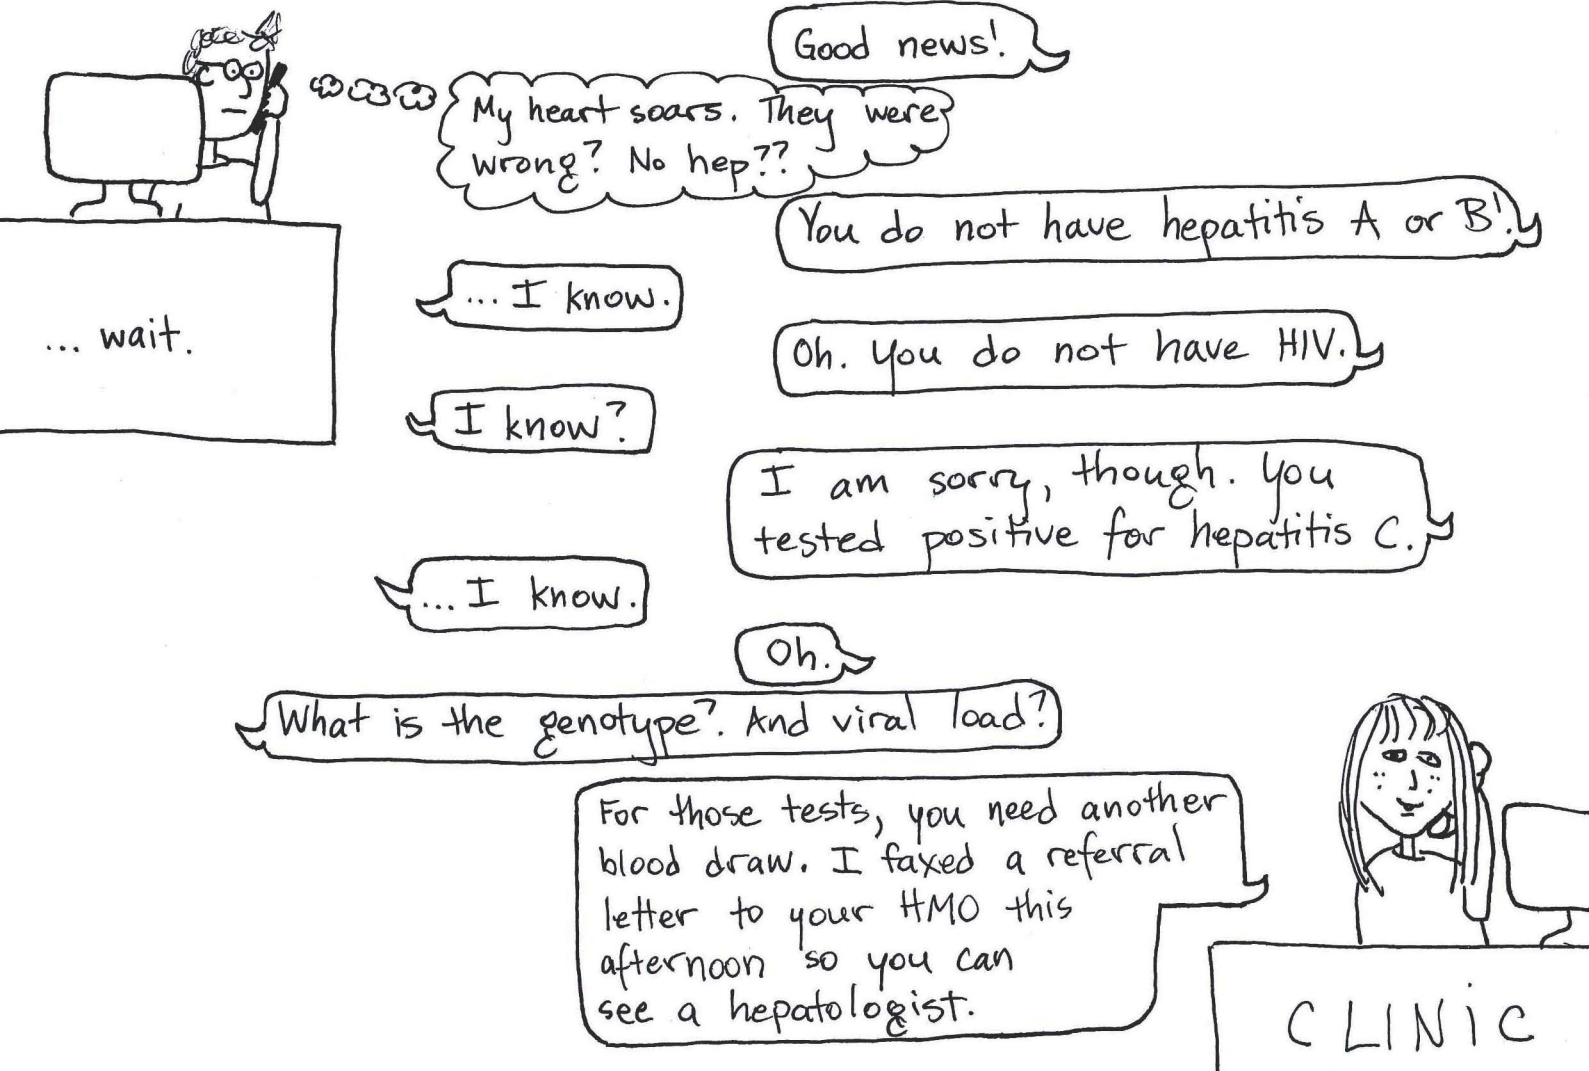 Good news!
My heart soars. They were
wrong? No hep??
You do not have hepatitis A or B!
... I know.
... wait.
Oh. You do not have HIV.
I know?
I am sorry, though. You
tested positive for hepatitis C.
... I know.
Oh.
What is the genotype? And viral load?
For those tests, you need another
blood draw. I faxed a referral
letter to your HMO this
afternoon so you can
see a hepatologist.
CLINiC